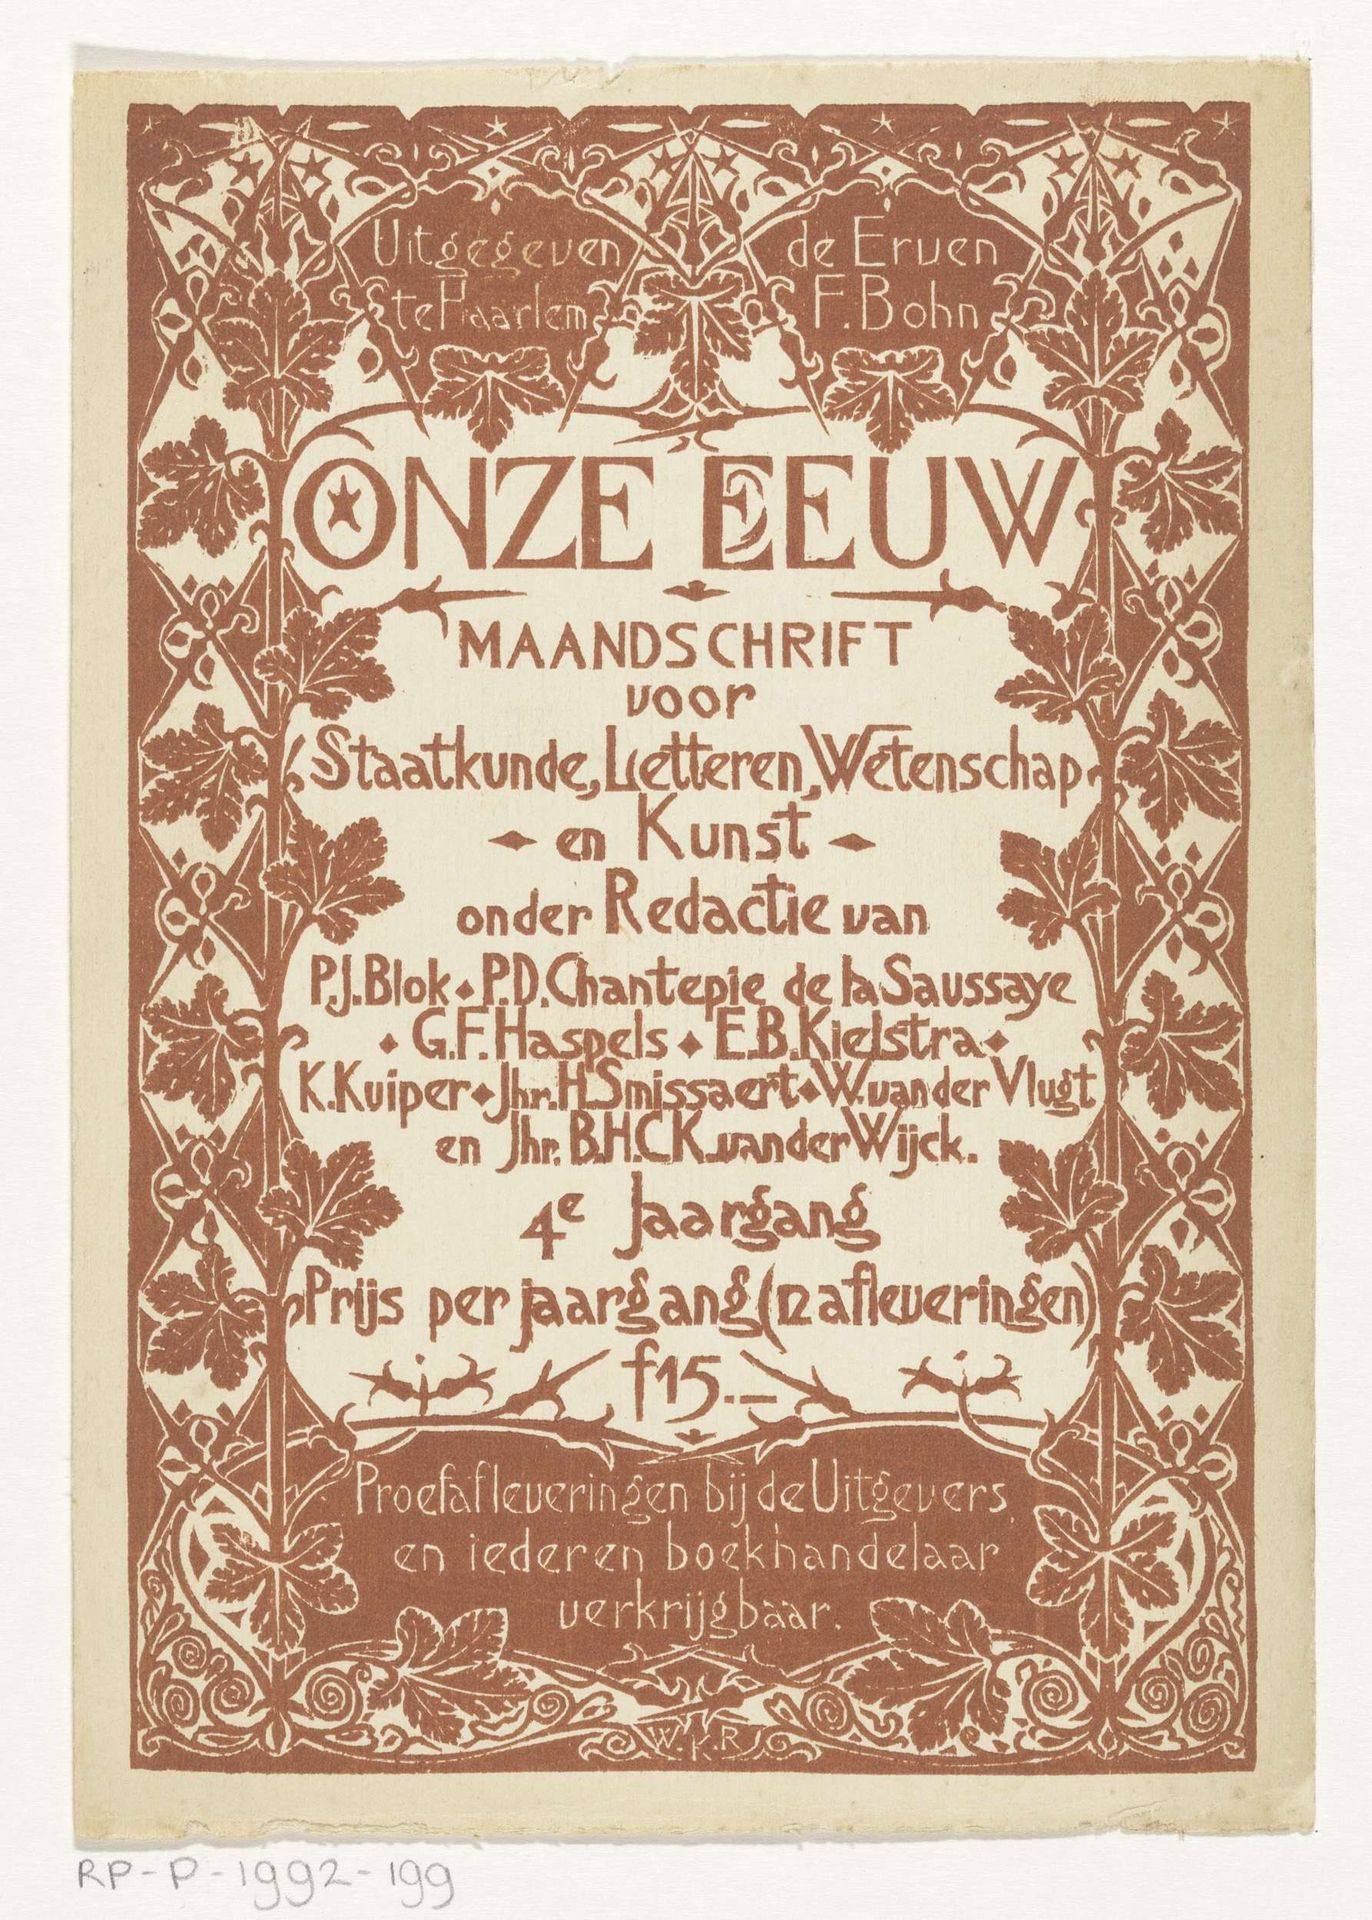 Uitgegeven
te Haarlem
de Erven
F. Bohn
ONZE EEUW
MAANDSCHRIFT
voor
Staatkunde, Letteren, Wetenschap
en Kunst
onder Redactie van
P.J. Blok ⬥ P.D. Chantepie de la Saussaye
⬥ G.F. Haspels ⬥ E.B. Kielstra ⬥
K. Kuiper ⬥ Jhr. H. Smissaert ⬥ W. van der Vlugt
en Jhr. B.H.C.K. van der Wijck.
4e Jaargang
Prijs per jaargang (12 afleveringen)
f 15.—
Proefafleveringen bij de Uitgevers
en iederen boekhandelaar
verkrijgbaar.
W.K.R
RP-P-1992-199